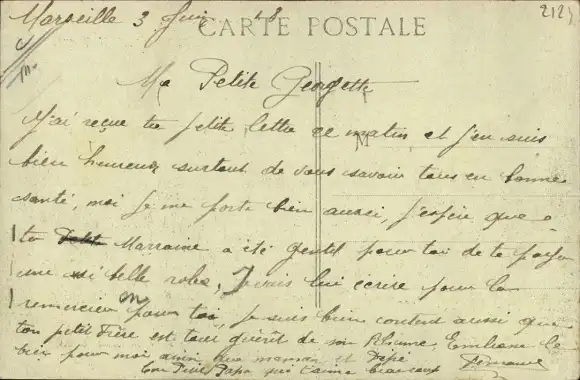 Marseille 3 Juin 18
CARTE POSTALE
212
Ma Petite Georgette
J'ai reçue ta petite lettre ce matin et j'en suis
bien heureux surtout de vous savoir tous en bonne
santé, moi je me porte bien aussi, j'espère que
ta Marraine a été gentil pour toi de te payer
une si belle robe, Je vais lui écrire pour la
remercier pour toi, Je suis bien content aussi que
ton petit Frère est tout guérit de son Rhume. Embrasse le
bien pour moi ainsi que maman et Pépé
Ton Petit Papa qui t'aime beaucoup